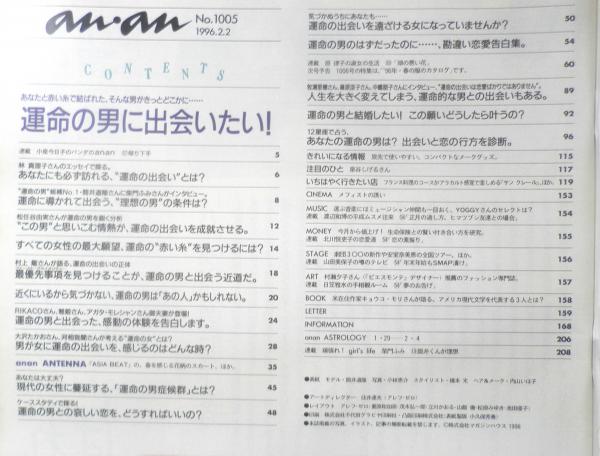 an・an
No.1005
1996.2.2
CONTENTS
あなたと赤い糸で結ばれた、そんな男がきっとどこかに……
運命の男に出会いたい!
連載 小泉今日子のパンダのanan ⑰堀り下手 5
林 真理子さんのエッセイで探る。
あなたにも必ず訪れる、“運命の出会い”とは? 6
“運命の男”候補No.1・筒井道隆さんに柴門ふみさんがインタビュー。
運命に導かれて出会う、“理想の男”の条件は? 8
松任谷由実さんが運命の男を鋭く分析
“この男”と思いこむ情熱が、運命の出会いを成就させる。 12
すべての女性の最大願望、運命の“赤い糸”を見つけるには? 14
村上 龍さんが語る、運命の出会いの正体
最優先事項を見つけることが、運命の男と出会う近道だ。 18
近くにいるから気づかない、運命の男は「あの人」かもしれない。 20
RIKACOさん、難姫さん、アガタ・モレシャンさん御夫妻が登場!
運命の男と出会った、感動の体験を告白します。 24
大沢たかおさん、河相我聞さんが考える“運命の女”とは?
男が女に運命の出会いを、感じるのはどんな時? 28
anan ANTENNA 「ASIA BEAT」の、春を感じる花柄のスカート、ほか。 35
あなたは大丈夫?
現代の女性に蔓延する、「運命の男症候群」とは? 45
ケーススタディで探る!
運命の男との哀しい恋を、どうすればいいの? 48
気づかぬうちにあなたも……
運命の出会いを遠ざける女になっていませんか? 50
運命の男のはずだったのに……、勘違い恋愛告白集。 54
連載 原 律子の淑女の生活 ⑬「頭の悪い花」 60
次号予告 1006号の特集は、“96年・春の服のカタログ”です。
牧瀬里穂さん、藤原涼子さん、中嶋朋子さんにインタビュー、“運命の出会いは恋愛ばかりではありません”。
人生を大きく変えてしまう、運命的な男との出会いもある。 89
運命の男と結婚したい! この願いどうしたら叶うの? 92
12星座で占う。
あなたの運命の男は? 出会いと恋の行方を診断。 96
きれいになる情報 旅先で使いやすい、コンパクトなメークグッズ。 115
注目のひと 泉谷しげるさん 117
いちはやく行きたい店 フランス料理のコースがアラカルト感覚で楽しめる『サン クレール』、ほか。 119
CINEMA メフィストの誘い 153
MUSIC 選ぶ音楽にはミュージシャン仲間も一目おく、YOGGYさんのセレクトは? 154
連載 渡辺和博の平成ムスメ注来 59「正月の過し方、ヒマツブシ友達との場合」
MONEY 今月から値上げ! 生命保険との賢い付き合い方を研究。 155
連載 北川悦吏子の恋愛道 58「恋の裏振り」
STAGE 総勢300の新作や安室奈美恵の全国ツアー、ほか。 156
連載 山田美保子の噂のテレビ 59「年末年始もSMAP漬け」
ART 村瀬夕子さん(『ビエスモンテ』デザイナー)推薦のファッション専門誌。 157
連載 日芝雅水の手相観ルーム 59「夢のお告げ」
BOOK 米在住作家キョウコ・モリさんが語る、アメリカ現代文学を代表する3人とは? 158
LETTER 159
INFORMATION 168
anan ASTROLOGY 1・29——2・4 206
連載 頑張れ! girl's life 柴門ふみ 住民弁くんが理想 208
●表紙 モデル・筒井道隆 写真・小林恵介 スタイリスト・橋本 光 ヘア&メーク・内山いほ子
●アートディレクター 住井達夫(アレフ・ゼロ)
●印刷 株式会社千代田グラビヤ印刷社・凸版印刷株式会社(表紙製版 小久保秀善)
●本誌掲載の写真、イラスト、記事の無断転載を禁じます。©株式会社マガジンハウス 1996